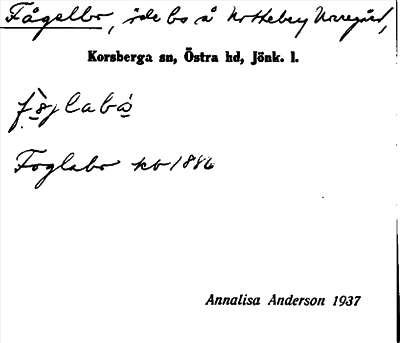 Fågelbo, öde bo å Kotteberg Norregård,
Korsberga sn, Östra hd, Jönk. l.
fòglabo
Foglabo kb 1886
Annalisa Anderson 1937